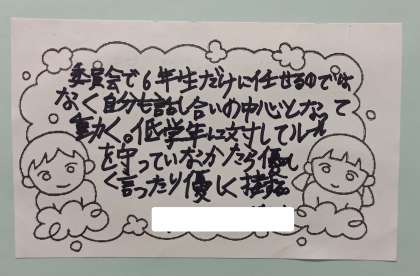 委員会で6年生だけに任せるのでは
なく自分も話し合いの中心となって
動く。低学年に対してルール
を守っていなかったら優し
く言ったり優しく接する